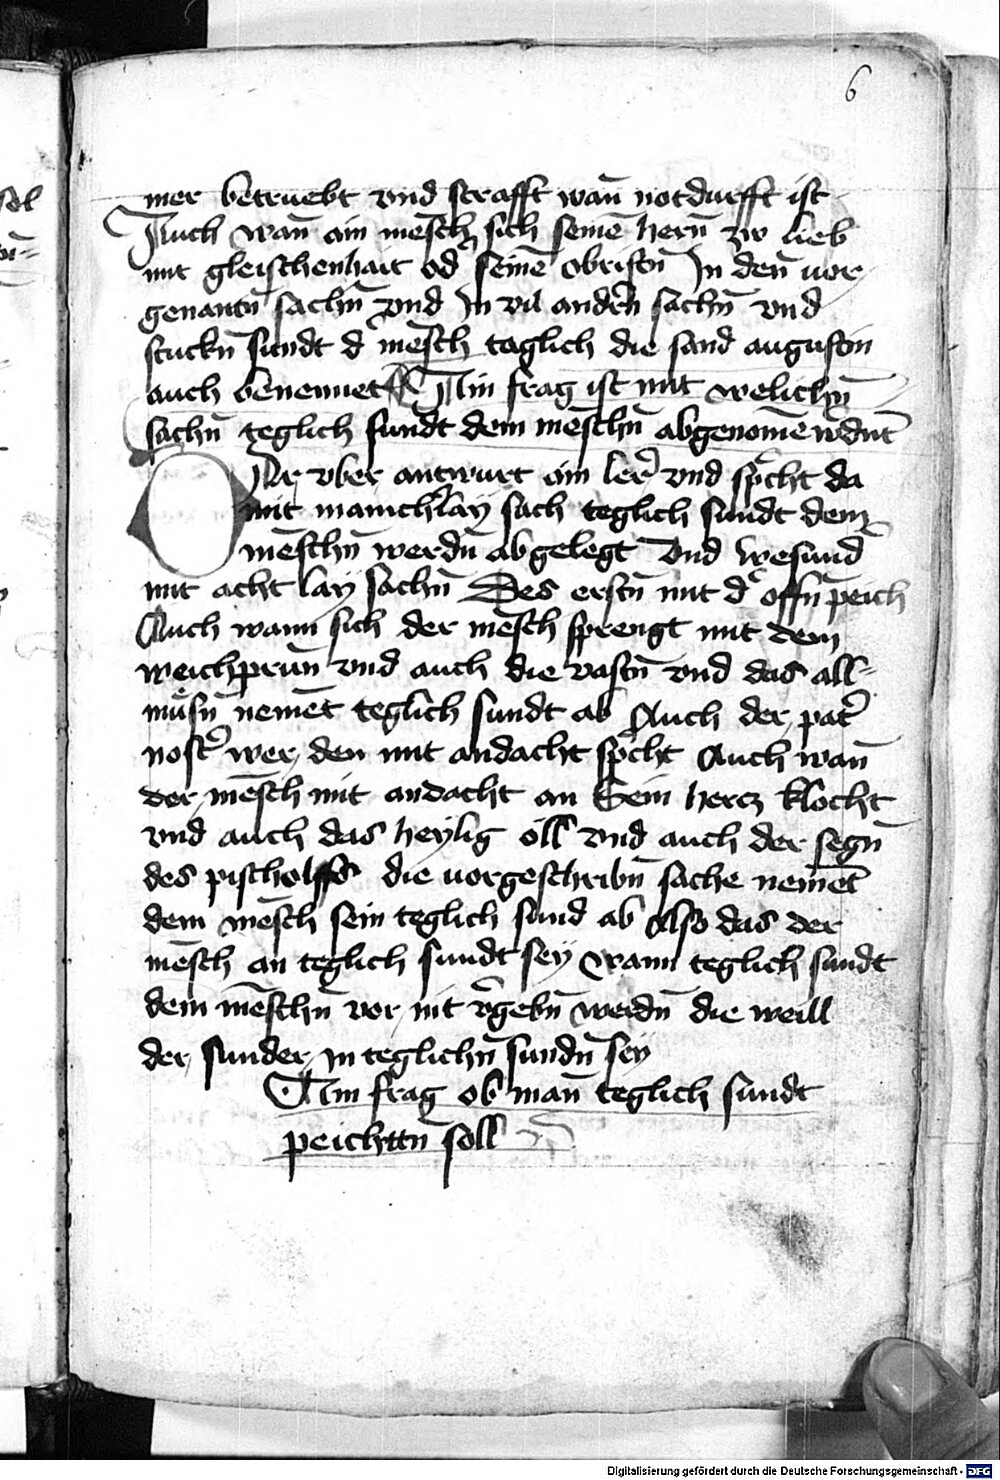 6
mer betruebt vnd strafft wan̄ notdurfft ist
Auch wan̄ ain mēsch sich seinē hern̄ zw lieb
mit gleischenhait od̾ seinē obristn̄ In den̄ uor
genantn̄ sachn̄ vnd In vil andern̄ sachn̄ vnd
stuckn̄ sundt d̾ mēsch taglich die sand augustin
auch benennet Ain frag ist mit welichn̄
sachn̄ teglich sundt dem mēschn̄ abgenomē w̾dnt
Ar vber antwurt ain ler̾ vnd sp̾cht da
mit manich̾lay sach teglich sundt dem
mēschn̄ werdn̄ abgelegt Vnd besund̾
mit acht lay sachn̄ Des erstn̄ mit d̾ offn̄ peich
Auch wann sich der mēsch sprengt mit dem
weichprun̄ vnd auch die vastn̄ vnd das all-
mu̇sn̄ nemēt teglich sundt ab Auch der pat̾
nost̾ wer den mit andacht sp̾cht Auch wan̄
der mēsch mit andacht an Sein hercz klocht
vnd auch das heylig öll vnd auch der segn̄
des pischolffs die uorgeschribn̄ sache nemēt
dem mēsch sein teglich sund ab Also das der
mēsch an teglich sundt sey wann teglich sundt
dem mēschn̄ vor nit v̾gebn̄ werdn̄ die weill
der sunder in teglichn̄ sundn̄ sey
Ain frag ob man̄ teglich sundt
peichttn̄ soll
Digitalisierung gefördert durch die Deutsche Forschungsgemeinschaft - DFG